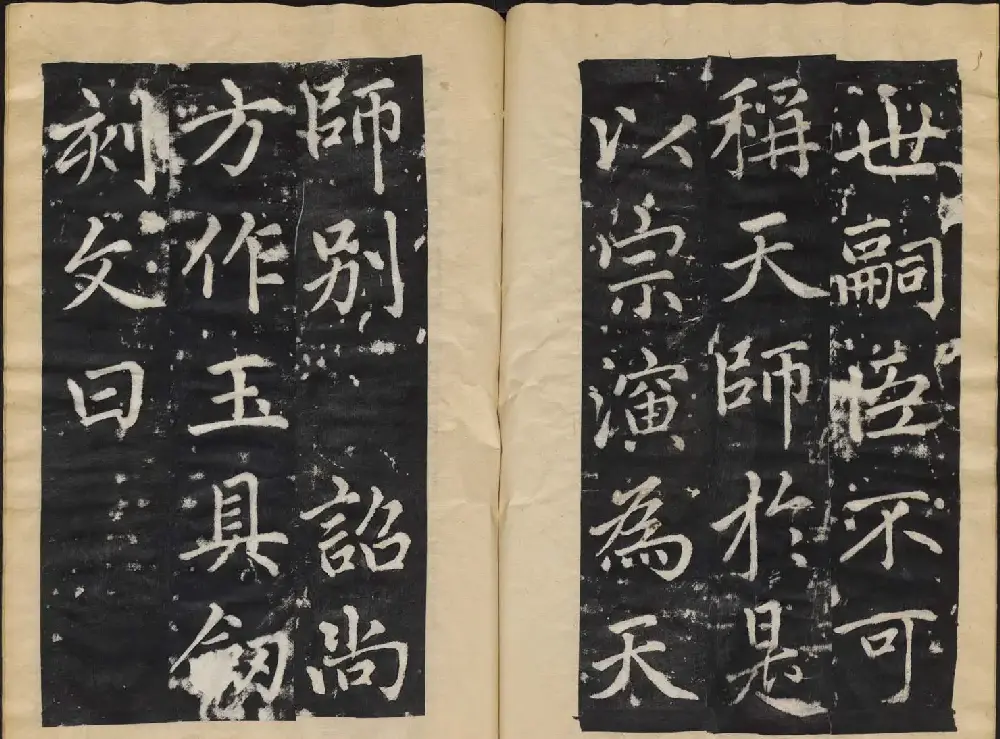 世嗣臣不可
稱天師於是
以宗演為天
師別詔尚
方作玉具劒
刻文曰